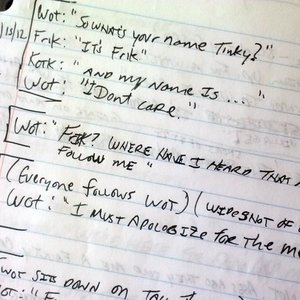 Wot: "So what's your name Tinky?"
15/12 Frik: "It's Frik"
Kotk: "AND my NAME IS ... "
Wot: "I Dont care."
Wot: "Frik? WHERE HAVE I HEARD THAT
FOLLOW ME"
(Everyone follows WOT) (
WOT: "I MUST APOLOGIZE FOR THE
WOT SITS DOWN ON